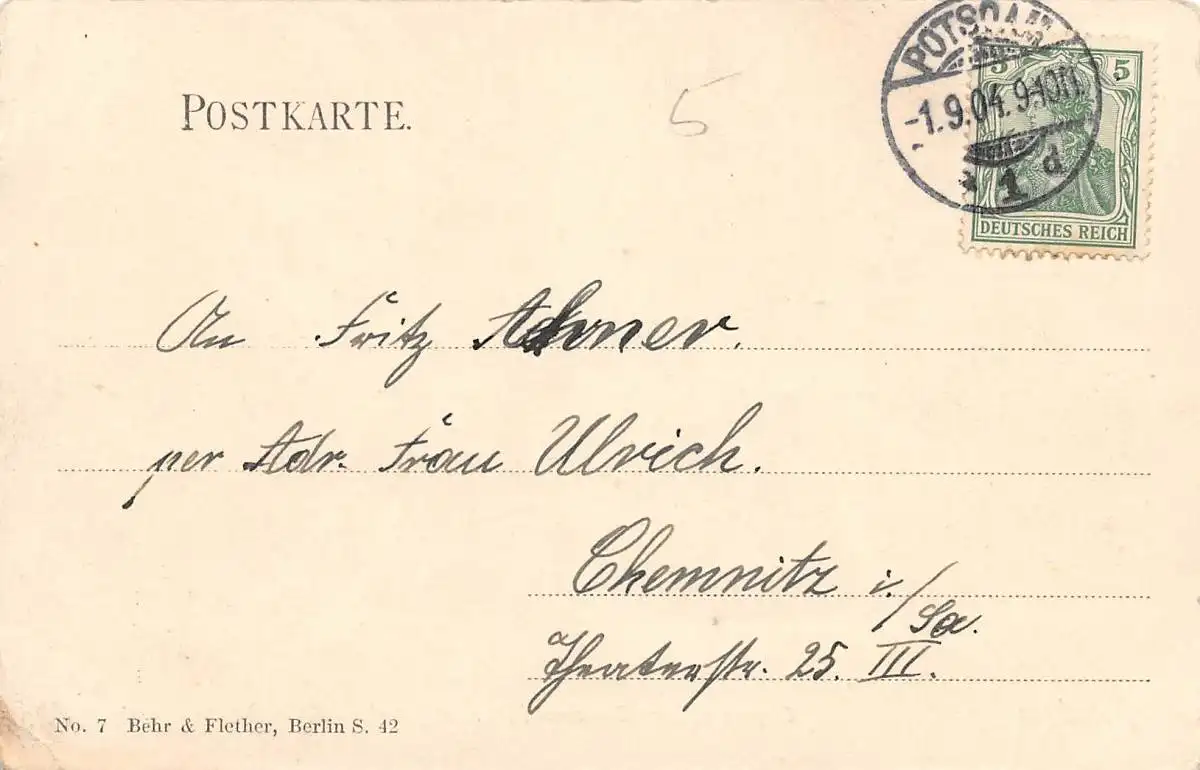 POSTKARTE.
5
POTSDAM
-1.9.04.9-10N.
* 1 d
5 5
DEUTSCHES REICH
An Fritz
per Adr. Frau Ulrich.
Chemnitz i./Sa.
Theaterstr. 25. III.
No. 7 Behr & Flether, Berlin S. 42